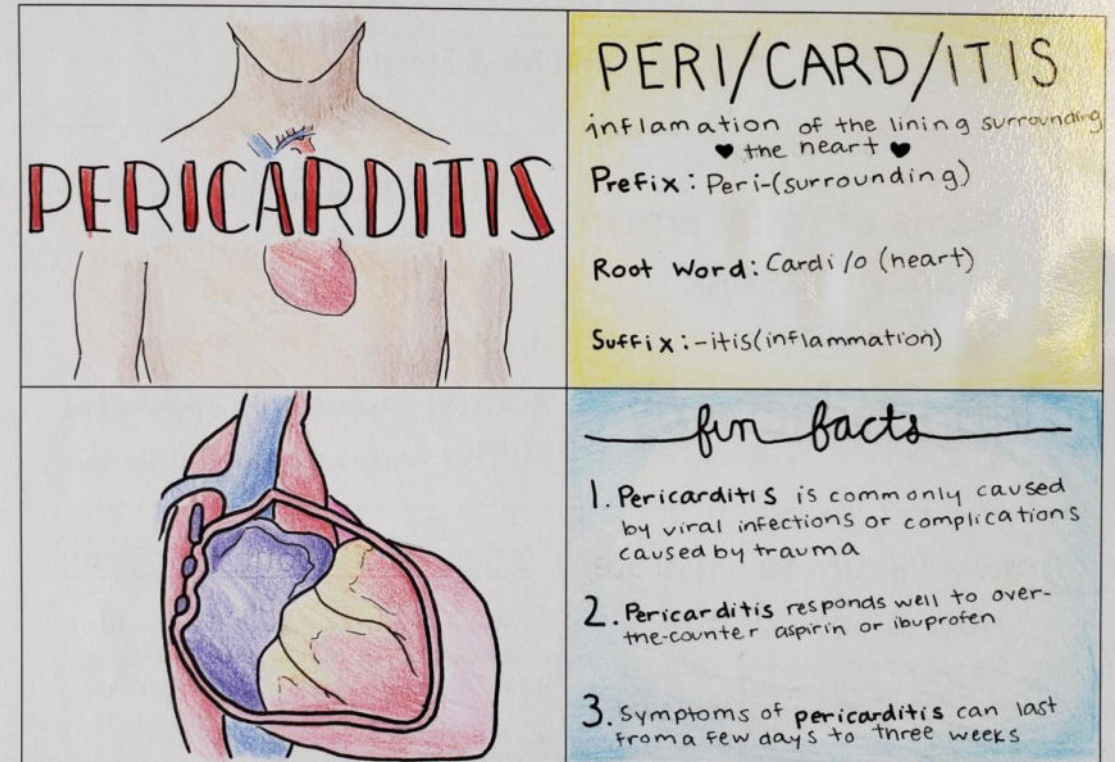 PERICARDITIS
PERI/CARD/ITIS
inflamation of the lining surrounding
♥ the heart ♥
Prefix: Peri-(surrounding)
Root Word: Cardi/o (heart)
Suffix: -itis(inflammation)
fun facts
1. Pericarditis is commonly caused
by viral infections or complications
caused by trauma
2. Pericarditis responds well to over-
the-counter aspirin or ibuprofen
3. Symptoms of pericarditis can last
from a few days to three weeks